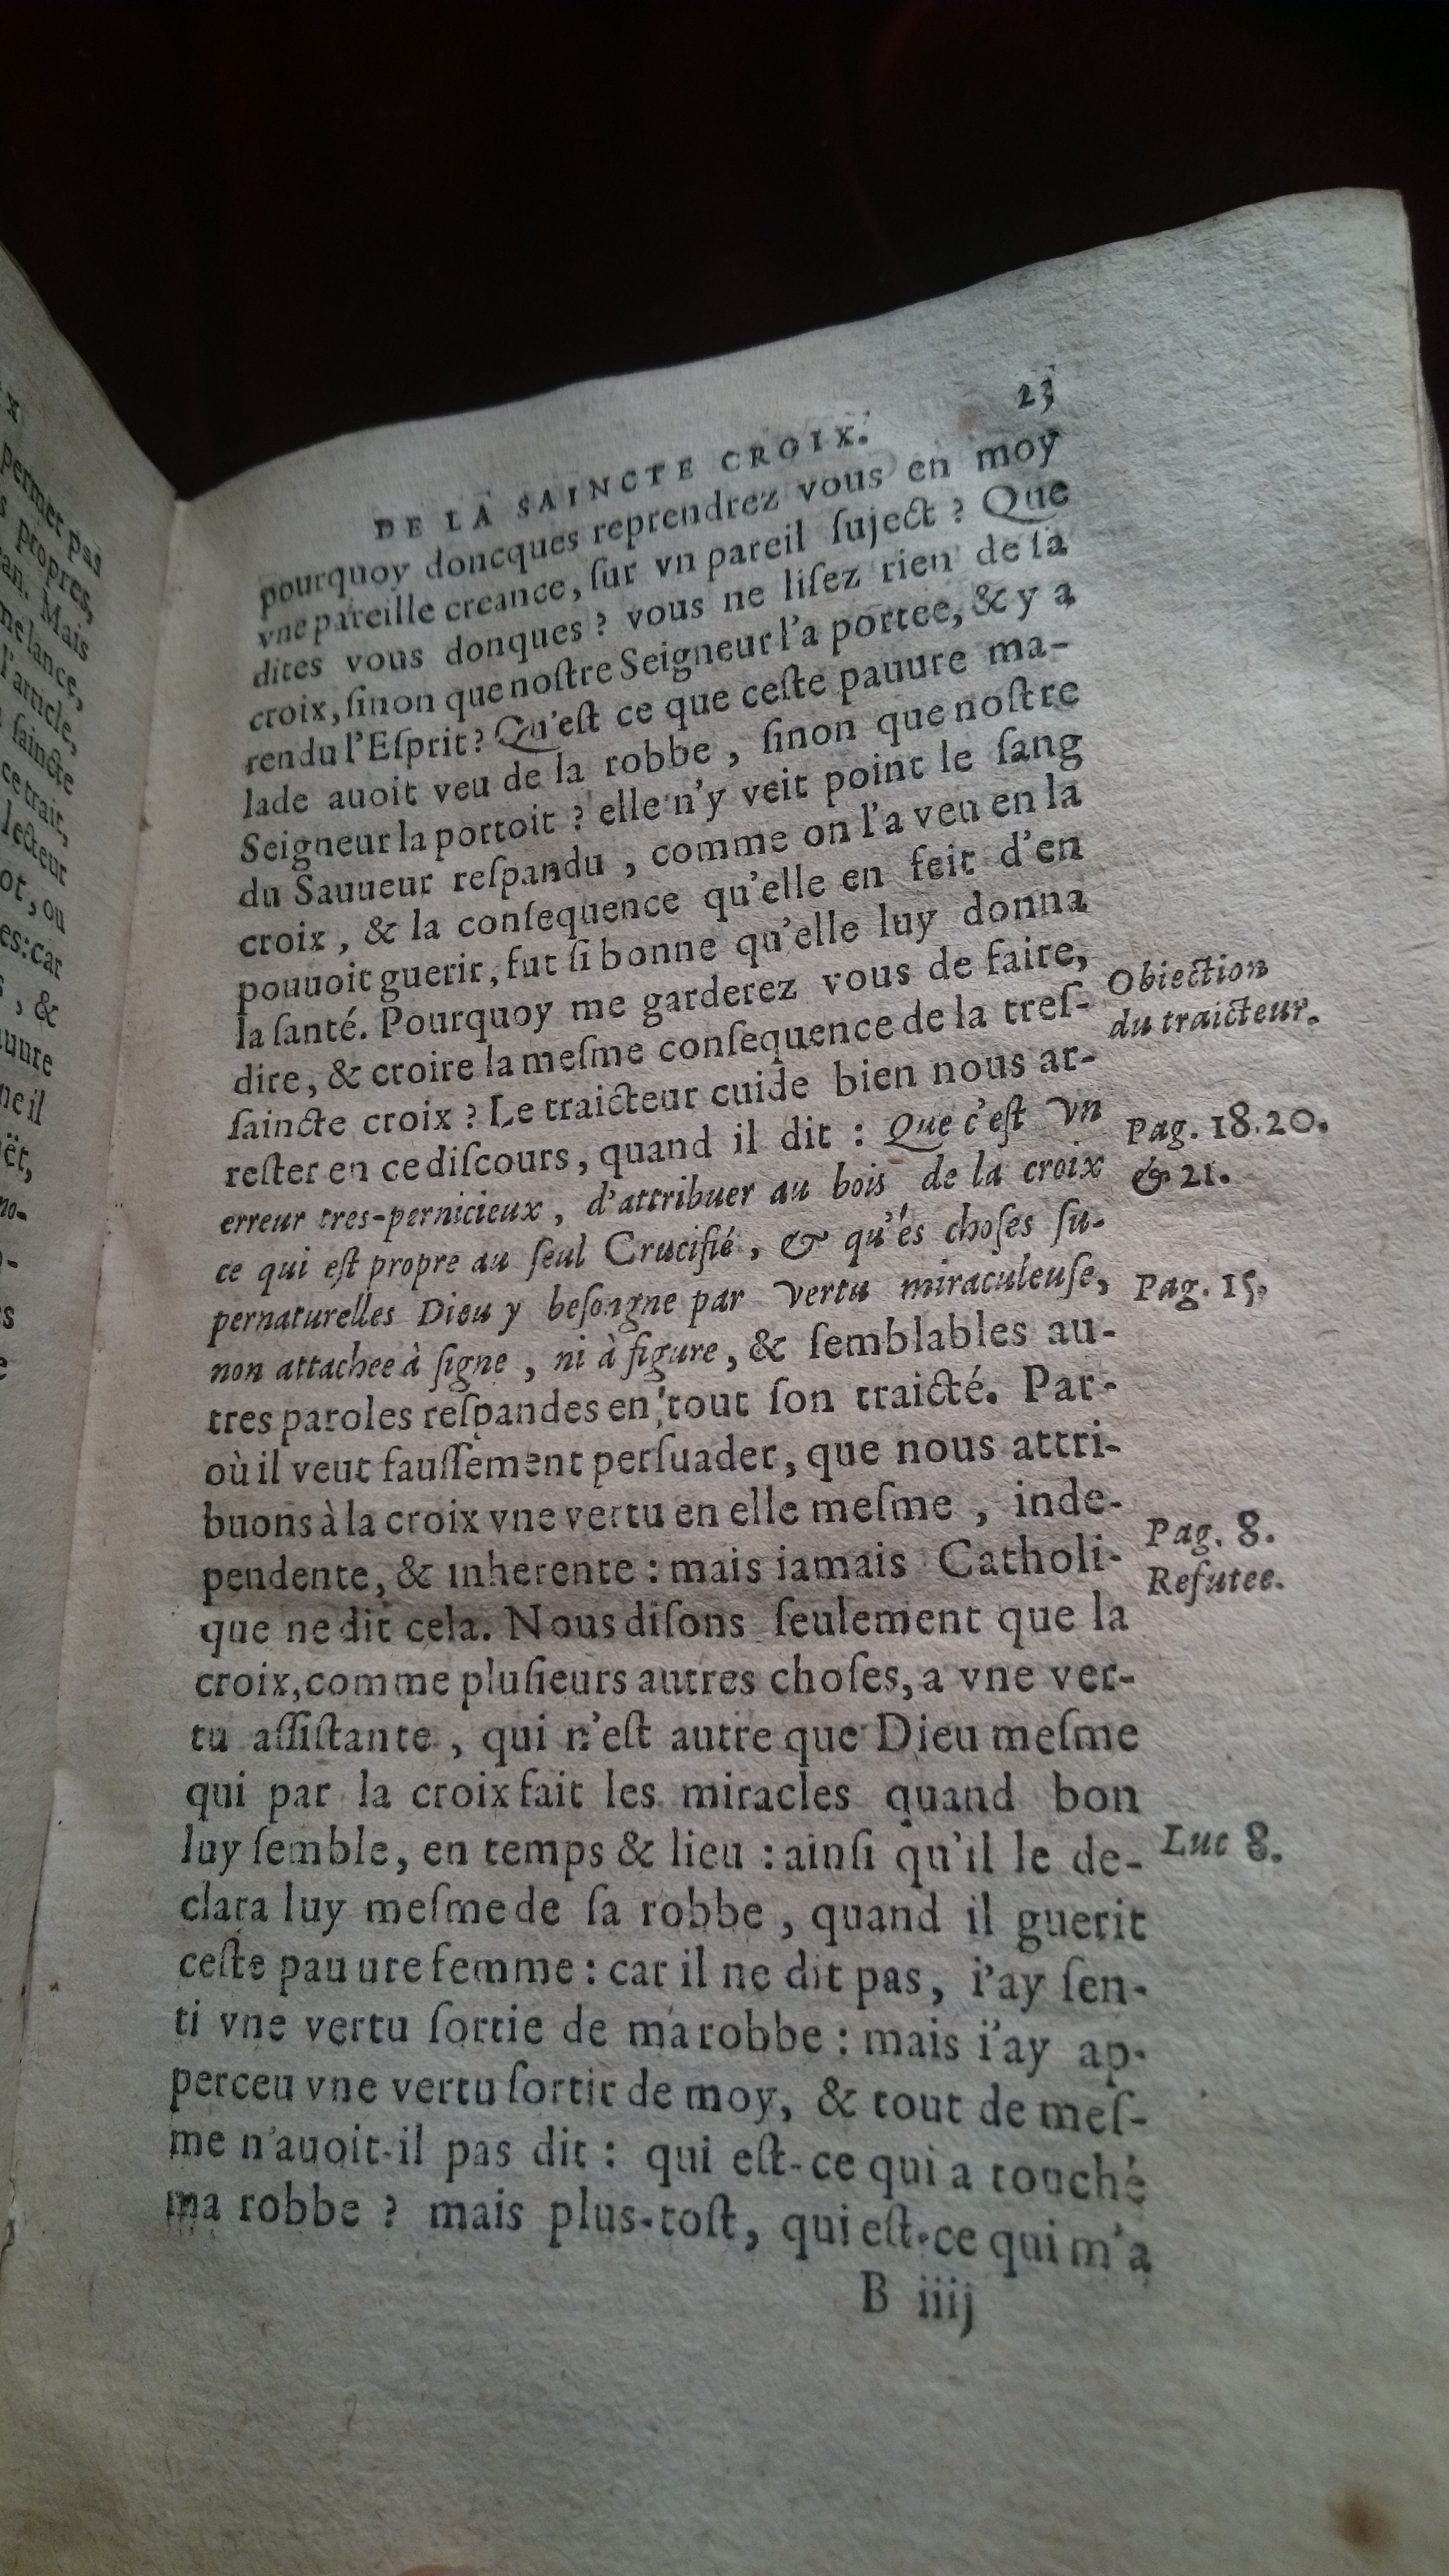 x
permet pas
s propres,
an. Mais
me lance,
l'article,
ſaincte
ce trait,
lecteur
ot, ou
es: car
s, &
auure
ne il
ët,
mo-
s
e
DE LA SAINCTE CROIX. 23
pourquoy doncques reprendrez vous en moy
vne pareille creance, ſur vn pareil ſuject? Que
dites vous donques? vous ne liſez rien de la
croix, ſinon que noſtre Seigneur l'a portee, & y a
rendu l'Eſprit? Qu'eſt ce que ceſte pauure ma-
lade auoit veu de la robbe, ſinon que noſtre
Seigneur la portoit? elle n'y veit point le ſang
du Sauueur reſpandu, comme on l'a veu en la
croix, & la conſequence qu'elle en feit d'en
pouuoit guerir, fut ſi bonne qu'elle luy donna
la ſanté. Pourquoy me garderez vous de faire,
dire, & croire la meſme conſequence de la treſ-
ſaincte croix? Le traicteur cuide bien nous ar-
reſter en ce diſcours, quand il dit: Que c'eſt vn
erreur tres-pernicieux, d'attribuer au bois de la croix
ce qui eſt propre au ſeul Crucifié, & qu'és choſes ſu-
pernaturelles Dieu y beſongne par vertu miraculeuſe,
non attachee à ſigne, ni à figure, & ſemblables au-
tres paroles reſpandes en tout ſon traicté. Par-
où il veut fauſſement perſuader, que nous attri-
buons à la croix vne vertu en elle meſme, inde-
pendente, & inherente: mais iamais Catholi-
que ne dit cela. Nous diſons ſeulement que la
croix, comme pluſieurs autres choſes, a vne ver-
tu aſſiſtante, qui n'eſt autre que Dieu meſme
qui par la croix fait les miracles quand bon
luy ſemble, en temps & lieu: ainſi qu'il le de-
clara luy meſme de ſa robbe, quand il guerit
ceſte pauure femme: car il ne dit pas, i'ay ſen-
ti vne vertu ſortie de ma robbe: mais i'ay ap-
perceu vne vertu ſortir de moy, & tout de meſ-
me n'auoit-il pas dit: qui eſt-ce qui a touché
ma robbe? mais plus-toſt, qui eſt-ce qui m'a
B iiij
Obiection
du traicteur.
Pag. 18. 20.
& 21.
Pag. 15.
Pag. 8.
Refutee.
Luc 8.